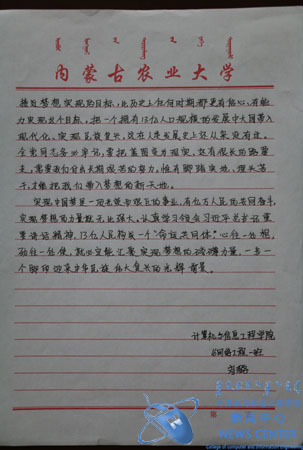 内蒙古农业大学
接近梦想实现的目标，比历史上任何时期都更有信心、有能
力实现这个目标，把一个拥有13亿人口规模的发展中大国带入
现代化、实现民族复兴，这在人类发展史上还从来没有过。
全党同志务必牢记，要把蓝图变为现实，还有很长的路要
走，需要我们付出长期艰苦的努力，惟有脚踏实地、埋头苦
干，才能把我们带入梦想的新天地。
实现中国梦是一项光荣而艰巨的事业，有亿万人民的共同奋斗，
实现梦想的力量就无比强大。认真学习领会习近平总书记重
要讲话精神，13亿人民构成一个"命运共同体"，心往一处想，
劲往一处使，就必定能汇聚实现梦想的磅礴力量，一步一
个脚印迎来中华民族伟大复兴的光辉前景。
计算机与信息工程学院
网络工程一班
第
新闻中心
NEWS CENTER
College of computer and information engineering